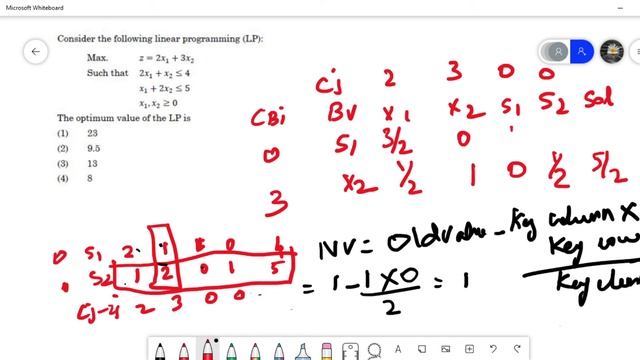 Microsoft Whiteboard
Consider the following linear programming (LP):
Max. z = 2x₁ + 3x₂
Such that 2x₁ + x₂ ≤ 4
x₁ + 2x₂ ≤ 5
x₁, x₂ ≥ 0
The optimum value of the LP is
(1) 23
(2) 9.5
(3) 13
(4) 8
Cj 2 3 0 0
CBi BV x1 x2 S1 S2 Sol
0 S1 3/2 0
3 x2 1/2 1 0 1/2 5/2
0 S1 2 1 1 0
S2 1 2 0 1 5
2 3 0 0
NV = Old value - Key column X
Key row
= 1 - 1 X 0 / 2 = 1